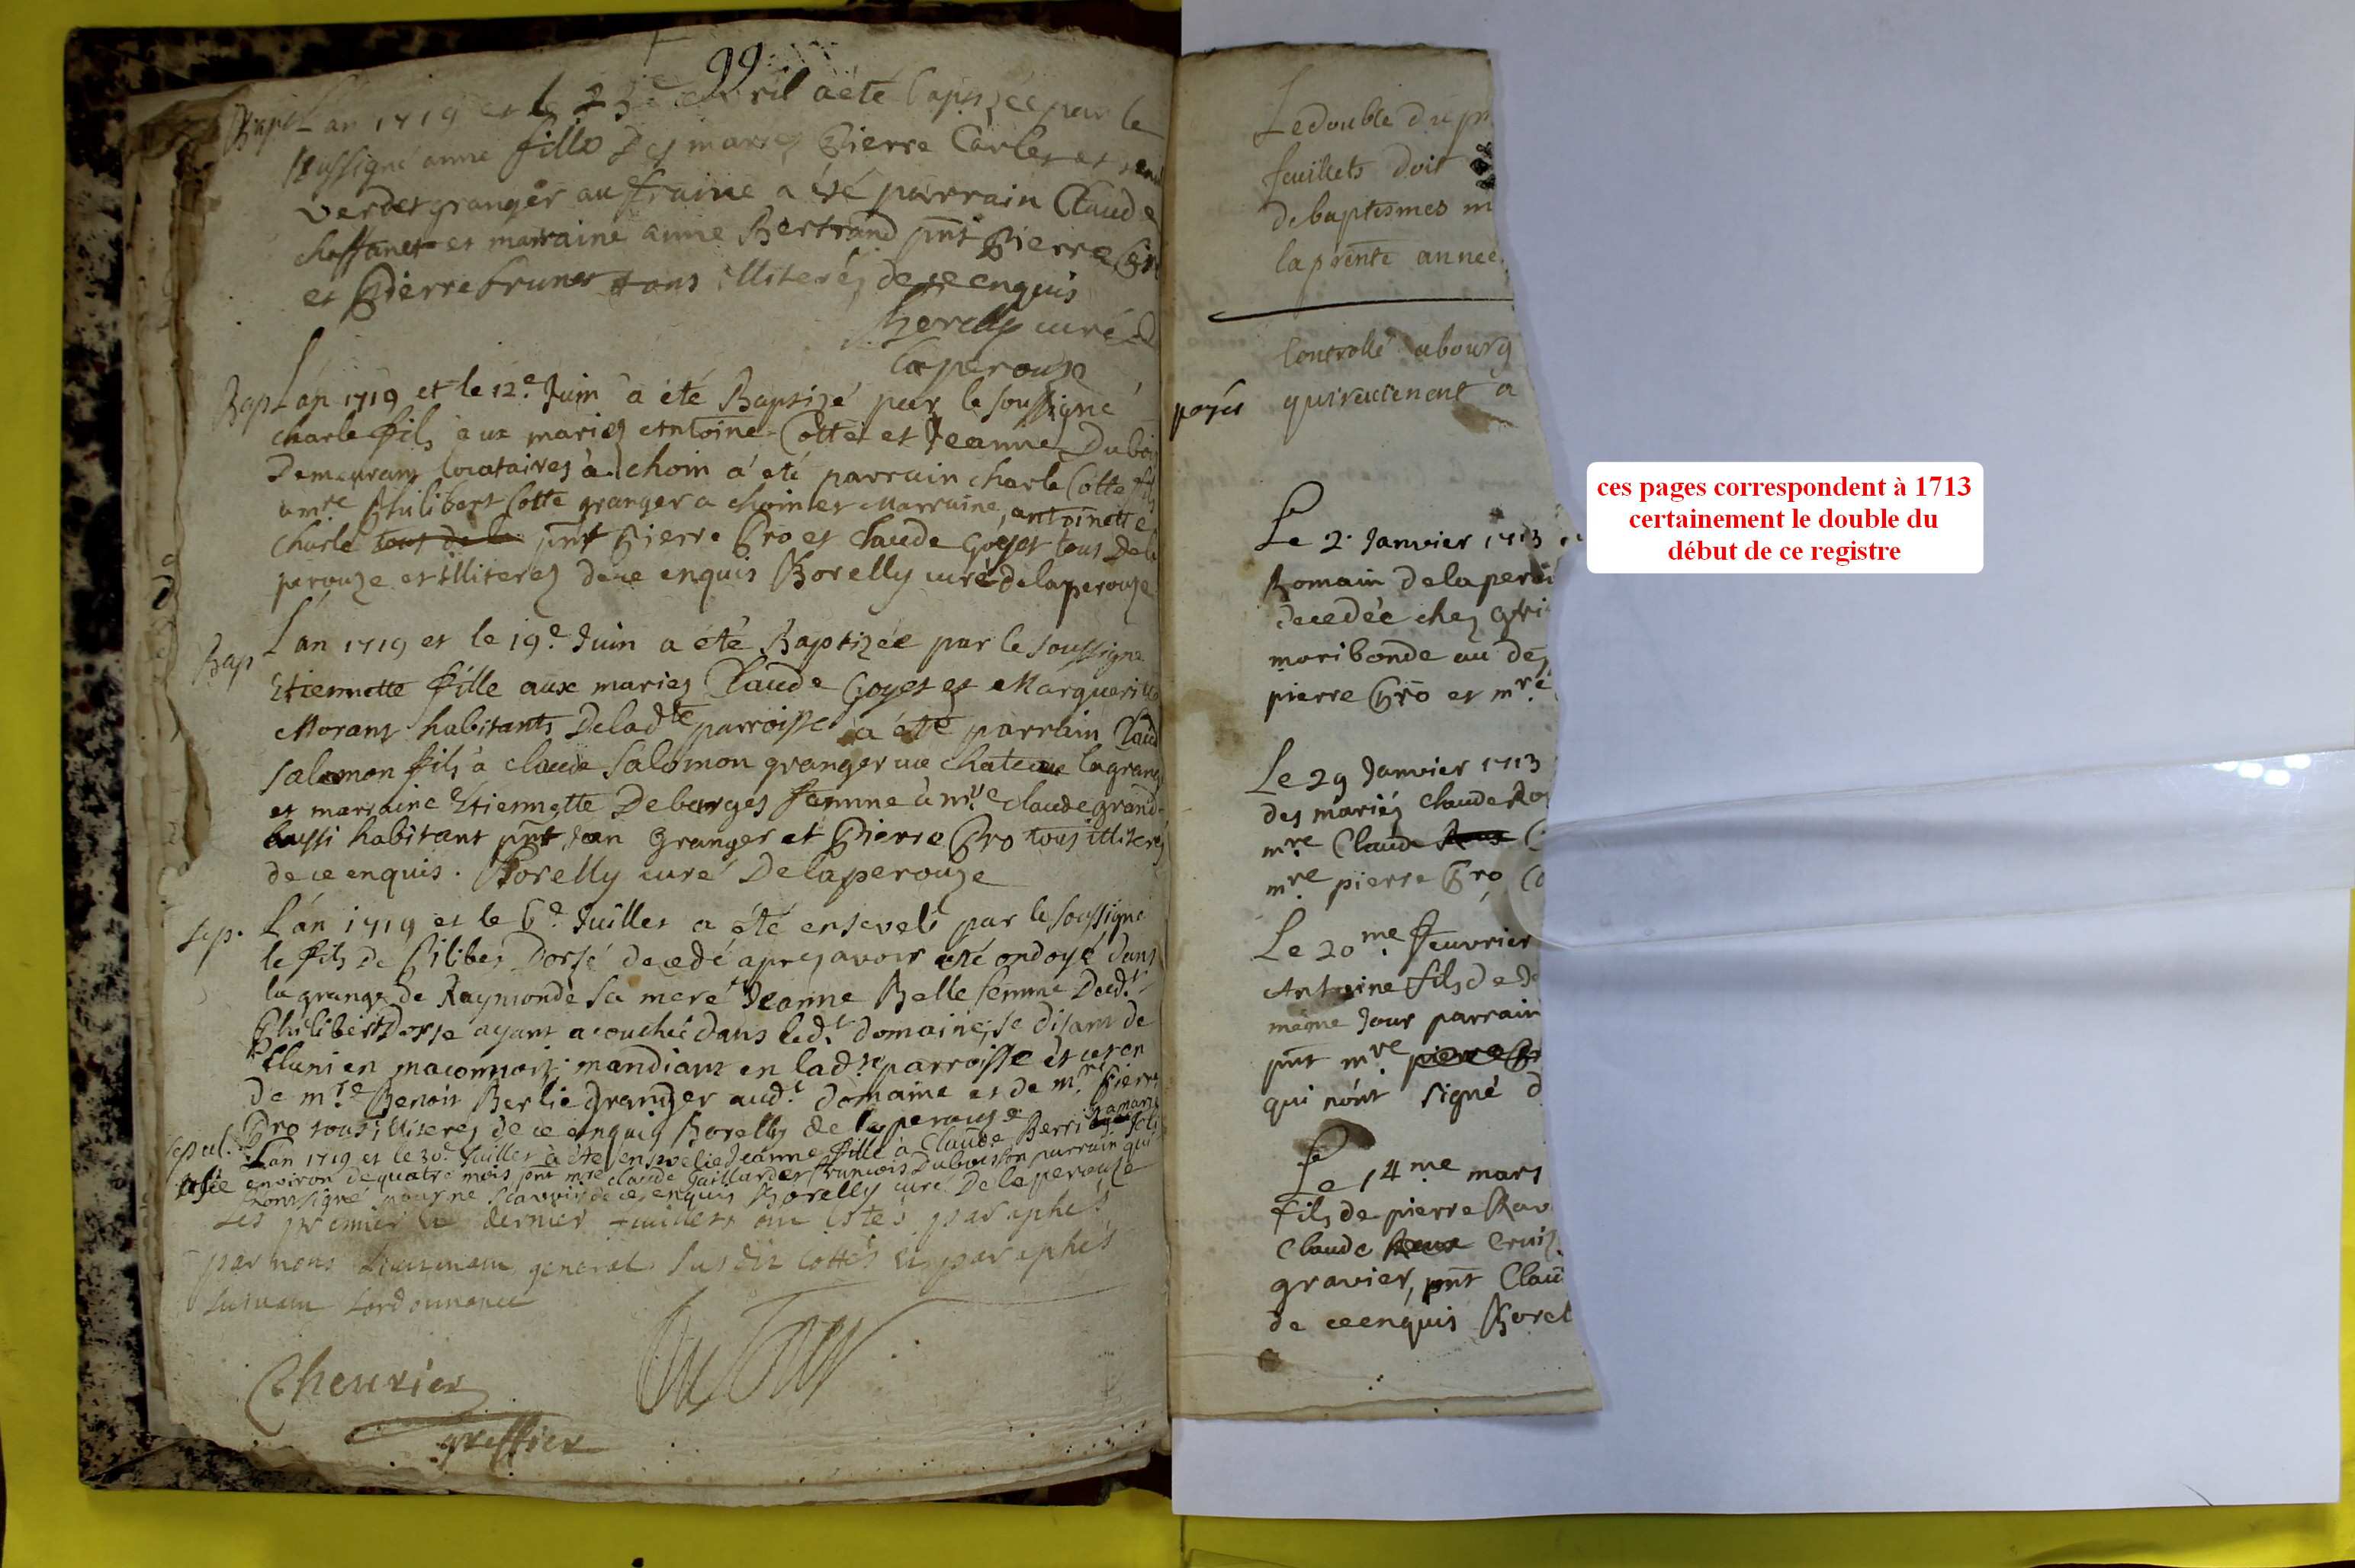 99
Bap L'an 1719 et le avril a été baptizée par le
soussigné anne fille Des mariez Pierre Carlet et
verdet granger au ffraine a été parrain Claude
chaffanet et marraine anne Bertrand pnt Pierre
et Pierre brunet tous illiterés de ce enquis
Borelly curé D
laperouze
Bap L'an 1719 et le 12e Juin a été Baptizé par le soussigné
charle fils aux mariez Antoine Cotte et Jeanne Duboi
Demeurans locataires à choin a été parrain charle Cotte fils
a mre Philibert Cotte granger a choin et Marraine antoinette
Charle tous de la pnt Pierre Gro et Claude Goyet tous Dela
perouze et illiterez de ce enquis Borelly curé de laperouze
Bap L'an 1719 et le 19e Juin a été Baptizée par le soussigné
Etiennette fille aux mariez Claude Goyet et Marguerite
Morant habitants De ladte parroisse a été parrain Claud
salomon fils à claude Salomon granger au chateau lagrang
et marraine Etiennette Deborges femme à mre claude grand
aussi habitant pnt Jean Granger et Pierre Gro tous illiterez
de ce enquis. Borelly curé Delaperouze
sep. L'an 1719 et le 6e Juillet a été enseveli par le soussigné
le fils de Filiber Dorsé decedé apres avoir eté ondoyé dans
la grange de Raymonde sa mere Jeanne Belle femme Dudt
Philibert Dorse ayant acouchée dans ledt domaine, se disant de
Cluni en maconnois mandiant en ladte parroisse et ce en
de mre Benoit Berlie granger audt domaine et de mre Pierre
Gro tous illiterez de ce enquis Borelly de laperouze
sepul. L'an 1719 et le 30e Juillet a été ensevelie Jeanne fille à Claude Berri
agée environ de quatre mois pnt mre claude Gaillard et francois Dubois son parrain qui
n'ont signé pour ne scavoir de ce enquis Borelly curé Delaperouze
Les premier et dernier feuillets ont estés paraphés
par nous Lieutenant general susdit cottés et paraphés
suivant Lordonnance
Cheurier
greffier
Le double du p
feuillets doit
de baptesmes m
la presente année
Controllé a bourg
payés qui reviennent a
Le 2. Janvier 1713
Romain De laperou
decedée chez
moribonde au de
pierre Gro et mre
Le 29 Janvier 1713
des mariés Claude Ro
mre Claude
mre pierre Gro
Le 20me feuvrier
Antoine fils de
méme Jour parrain
pnt mre pierre
qui n'ont signé d
Le 14me mars
fils de pierre Rav
Claude
gravier, pnt Clau
de ce enquis Borel
ces pages correspondent à 1713
certainement le double du
début de ce registre